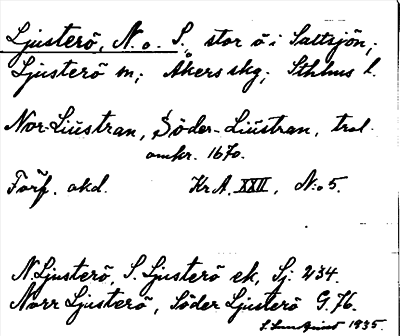 Ljusterö, N. o. S., stor ö i Saltsjön;
Ljusterö sn; Åkers skg; Sthlms l.
Nor-Liústran, Söder-Liústran, trol.
omkr. 1670.
Förf. okd. Kr A. XXII, N:o 5.
N. Ljusterö, S. Ljusterö ek, Sj. 234.
Norr Ljusterö, Söder Ljusterö G. 76.
1935.